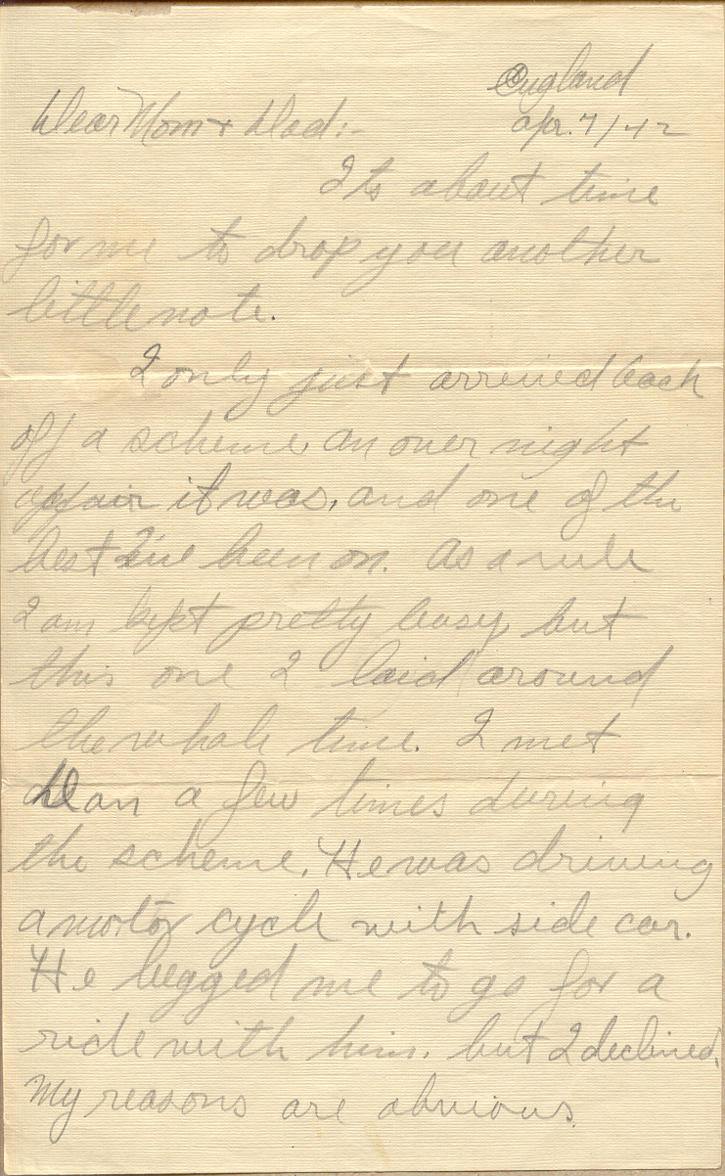 England
Apr. 7/42
Dear Mom & Dad:-
Its about time
for me to drop you another
little note.
I only just arrived back
off a scheme, an over night
affair it was, and one of the
best I've been on. As a rule
I am kept pretty busy, but
this one I laid around
the whole time. I met
a few times during
the scheme. He was driving
a motor cycle with side car.
He begged me to go for a
ride with him, but I declined.
My reasons are obvious.